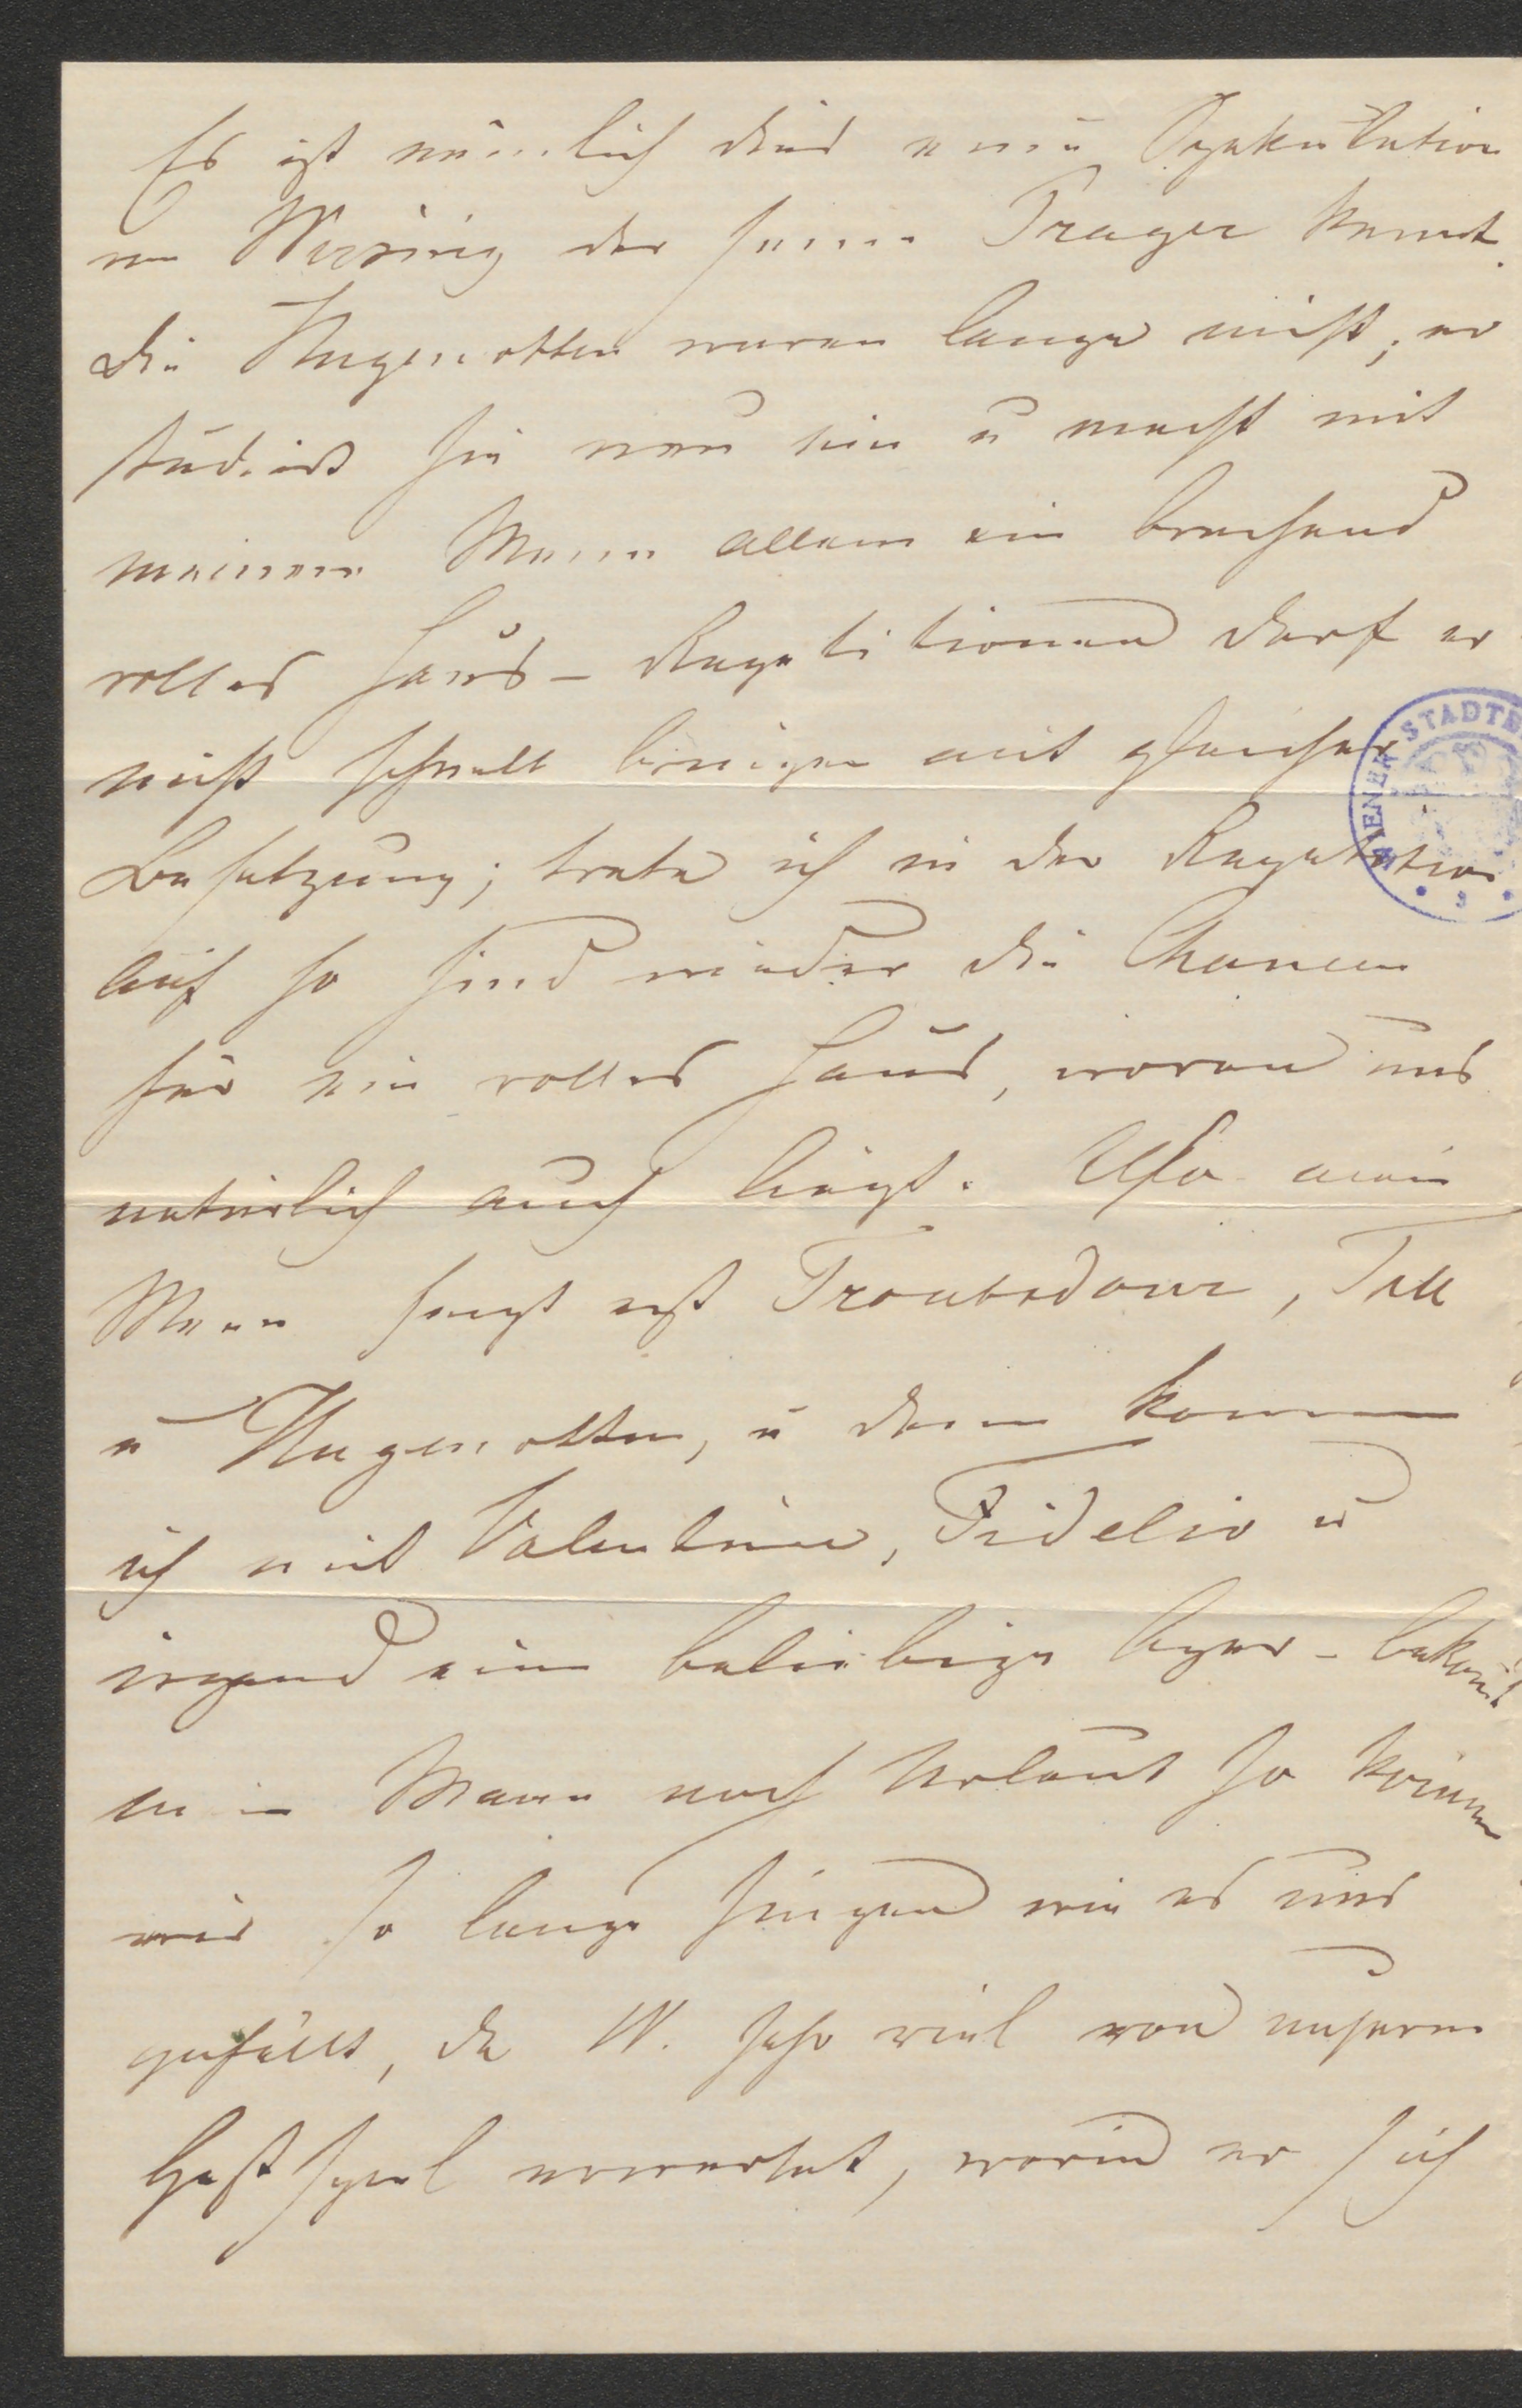 Es ist nämlich dies eine Spekulation
von Wirsing der seine Prager kennt.
Die Hugenotten waren lange nicht; er
studirt sie neu ein u macht mit
meinem Mann allein ein brechend
volles Haus – Repetitionen darf er
nicht schnell bringen mit gleicher
Besetzung; trete ich in der Repetition
auf so sind wieder die Chancen
für ein volles Haus, woran uns
natürlich auch liegt. Also mein
Mann singt erst Troubadour, Tell
u Hugenotten, u dann komme
ich mit Valentine, Fidelio u
irgend eine beliebige Oper – bekömt
mein Mann noch Urlaub so können
wir so lange singen wie es uns
gefällt, da W. sehr viel von unserm
Gastspiel erwartet, worin er sich
WIENER STADTB